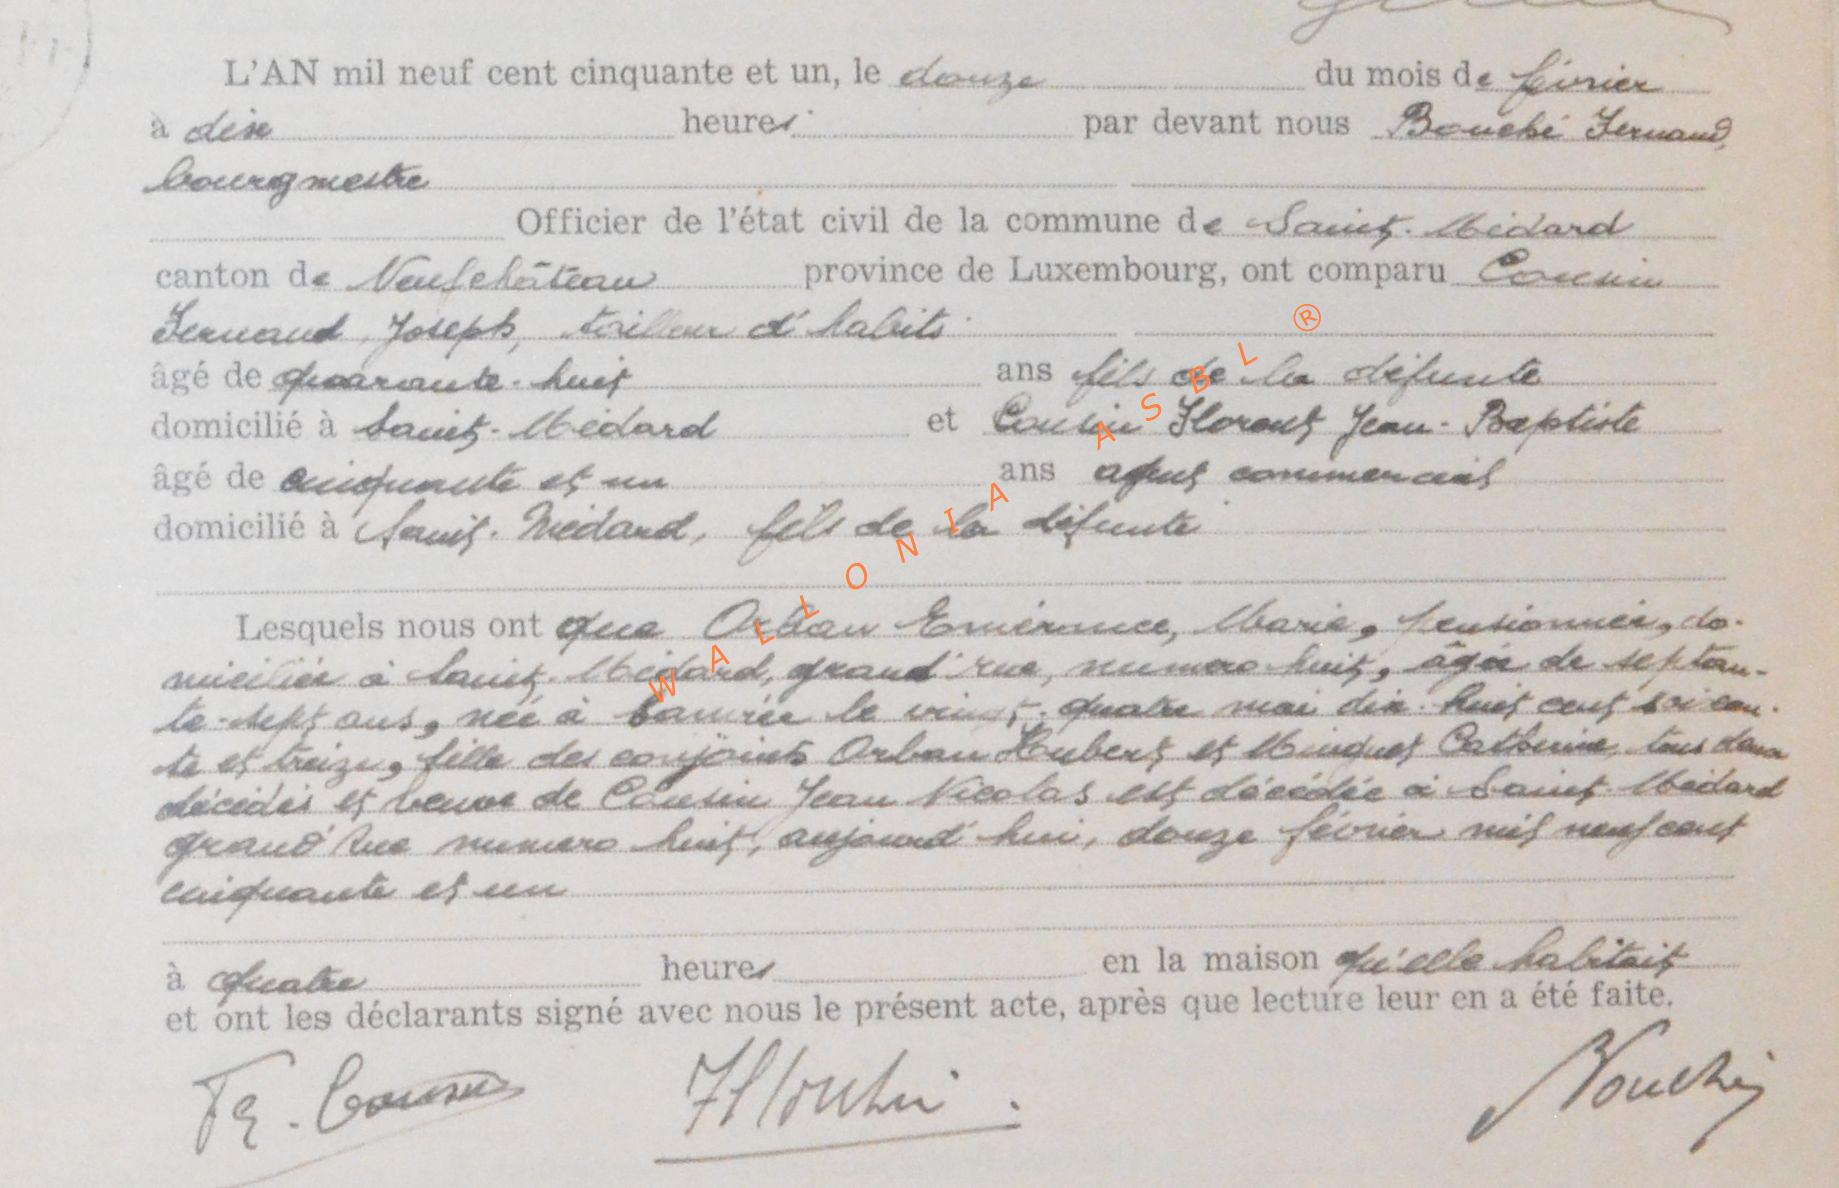 L'AN mil neuf cent cinquante et un, le douze du mois de février
à dix heures par devant nous Bouché Fernand,
bourgmestre
Officier de l'état civil de la commune de Saint-Médard
canton de Neufchâteau province de Luxembourg, ont comparu Cousin
Fernand, Joseph, tailleur d'habits
âgé de quarante-huit ans fils de la défunte
domicilié à Saint-Médard et Cousin Florent Jean-Baptiste
âgé de cinquante et un ans agent commercial
domicilié à Saint-Médard, fils de la défunte
Lesquels nous ont que Orban Emérance, Marie, pensionnée, do-
miciliée à Saint-Médard, grand'rue, numero huit, âgée de septan-
te-sept ans, née à le vingt-quatre mai dix-huit cent soixan-
te et treize, fille des conjoints Orban Hubert et Minquet Catherine, tous deux
décédés et veuve de Cousin Jean Nicolas est décédée à Saint-Médard
grand'rue numero huit, aujourd'hui, douze février mil neuf cent
cinquante et un
à quatre heures en la maison qu'elle habitait
et ont les déclarants signé avec nous le présent acte, après que lecture leur en a été faite.
Fe. Cousin Fl Cousin. Bouché
WALLONIA ASBL ®